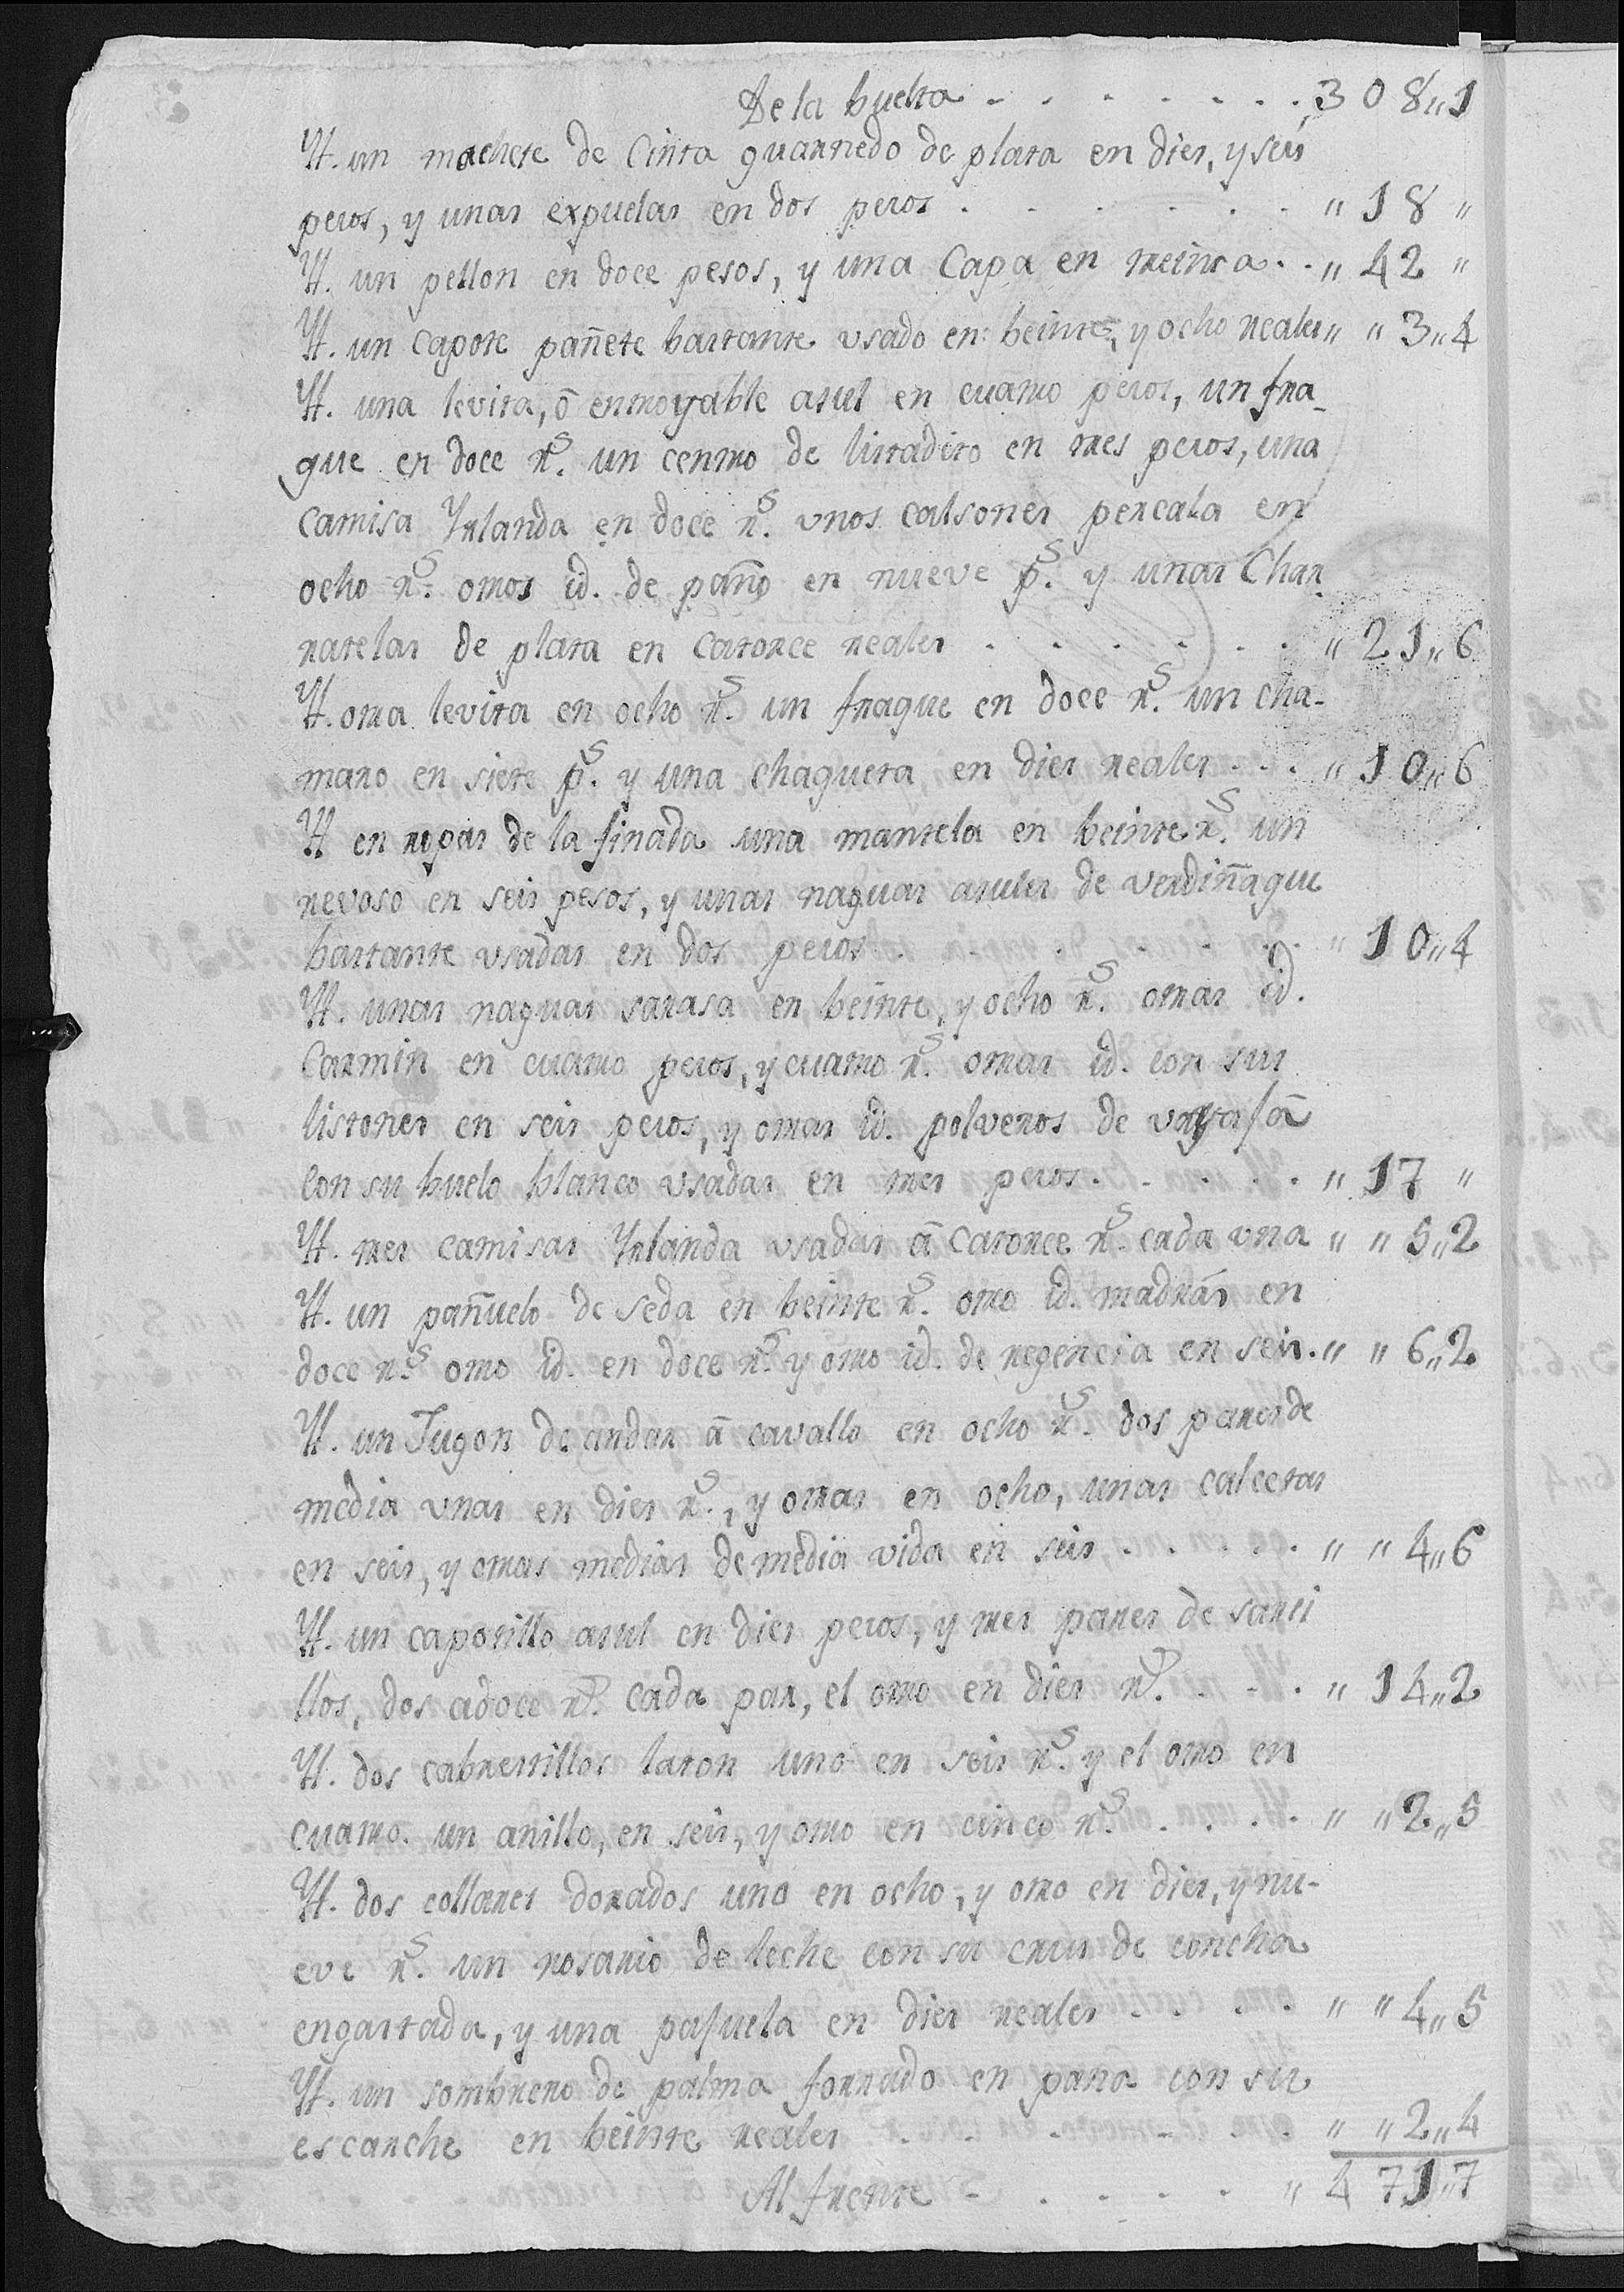 De la buelta . . . . . . . 308,,1
Yt. un machete de Cinta guarnedo de plata en dies, y seis
pesos, y unas expuelas en dos pesos . . . . . . ,, 18 ,,
Yt. un pellon en doce pesos, y una Capa en treinta . . ,, 42 ,,
Yt. un capote pañete bastante usado en beinte, y ocho reales ,, ,, 3,,4
Yt. una levita, ō entroyable asul en cuatro pesos, un fra-
que en doce rs. un centro de listadito en tres pesos, una
camisa Yrlanda en doce rs. unos calsones percala en
ocho rs. otros id. de paño en nueve ps. y unas Char
ratelas de plata en catorce reales . . . . . . ,, 21,,6
Yt. otra levita en ocho rs. un fraque en doce rs. un cha-
marro en siete ps. y una chaqueta en dies reales . . . ,, 10,,6
Yt en ropas de la finada una mantela en beinte rs. un
revoso en seis pesos, y unas naguas asules de verdiñaque
bastante usadas en dos pesos . . . . . . . ,, 10,,4
Yt. unas naguas sarasa en beinte, y ocho rs. otras id.
Carmin en cuatro pesos, y cuatro rs. otras id. con sus
listones en seis pesos, y otras id. polveros de
Con su buelo blanco usadas en tres pesos . . . . . ,, 17 ,,
Yt. tres camisas Yrlanda usadas ā catorce rs. cada una ,, ,, 5,,2
Yt. un pañuelo de seda en beinte rs. otro id. madrás en
doce rs. otro id. en doce rs. y otro id. de regencia en seis. ,, ,, 6,,2
Yt. un Jugon de andar ā cavallo en ocho rs. dos pares de
media unas en dies rs., y otras en ocho, unas calcetas
en seis, y otras medias de media vida en seis . . . . . ,, ,, 4,,6
Yt. un capotillo asul en dies pesos, y tres pares de sarci
llos, dos a doce rs. cada par, el otro en dies rs. . . . ,, 14,,2
Yt. dos cabrestillos laton uno en seis rs. y el otro en
cuatro. un anillo, en seis, y otro en cinco rs. . . . . ,, ,, 2,,5
Yt. dos collares dorados uno en ocho, y otro en dies, y nu-
eve rs. un rosario de leche con su crus de concha
engastada, y una pajuela en dies reales . . . . ,, ,, 4,,5
Yt. un sombrero de palma forrado en pana con su
escarche en beinte reales . . . . . . . ,, ,, 2,,4
Al frente . . . . . . ,, 471,,7